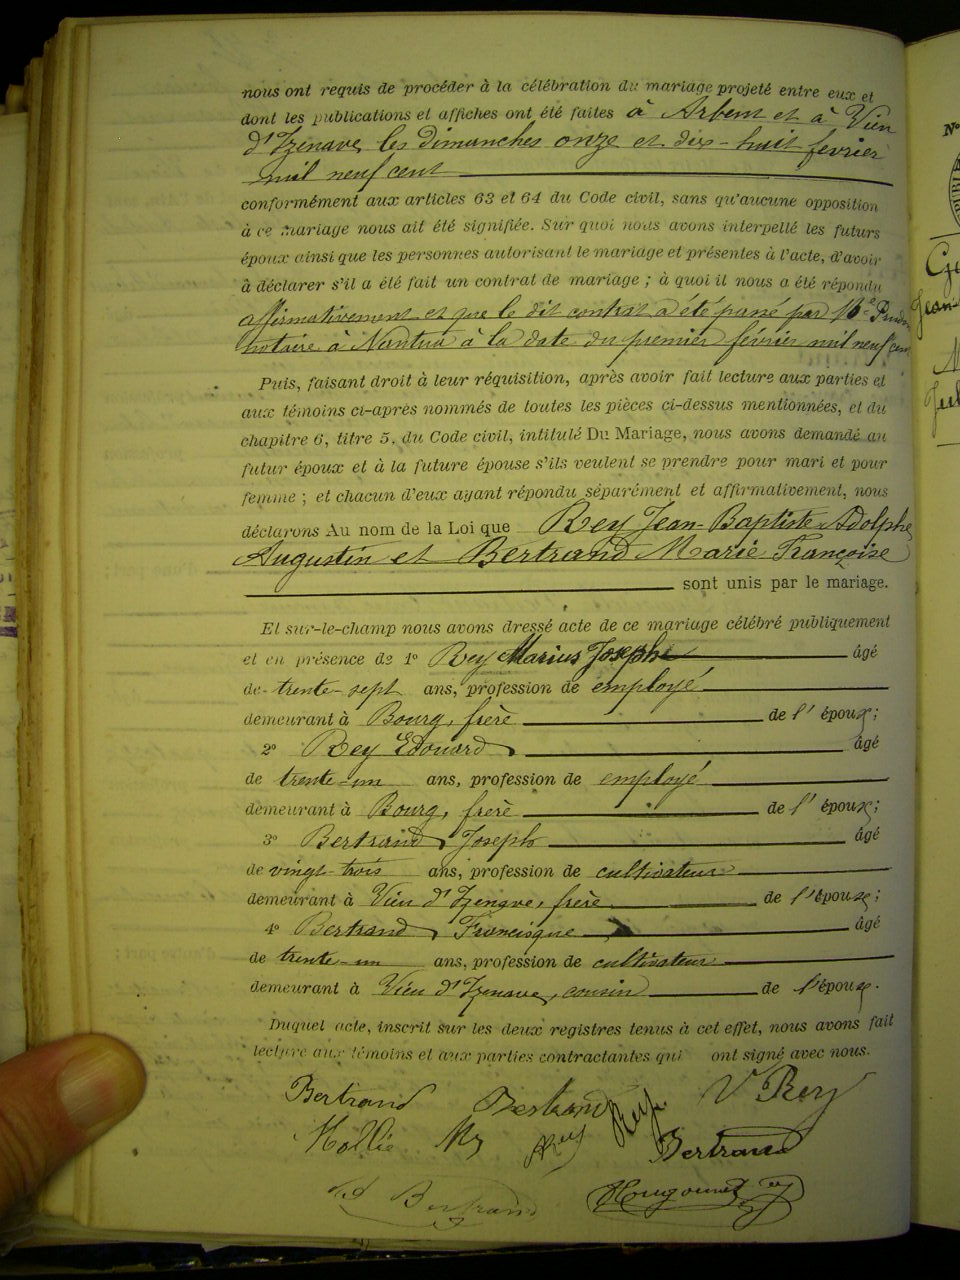 nous ont requis de procéder à la célébration du mariage projeté entre eux et
dont les publications et affiches ont été faites à Arbent et à Vieu
d'Izenave, les dimanches onze et dix-huit février
mil neuf cent
conformément aux articles 63 et 64 du Code civil, sans qu'aucune opposition
à ce mariage nous ait été signifiée. Sur quoi nous avons interpellé les futurs
époux ainsi que les personnes autorisant le mariage et présentes à l'acte, d'avoir
à déclarer s'il a été fait un contrat de mariage ; à quoi il nous a été répondu
affirmativement et que le dit contrat a été passé par Me
notaire à Nantua à la date du premier février mil neuf cent
Puis, faisant droit à leur réquisition, après avoir fait lecture aux parties et
aux témoins ci-après nommés de toutes les pièces ci-dessus mentionnées, et du
chapitre 6, titre 5, du Code civil, intitulé Du Mariage, nous avons demandé au
futur époux et à la future épouse s'ils veulent se prendre pour mari et pour
femme ; et chacun d'eux ayant répondu séparément et affirmativement, nous
déclarons Au nom de la Loi que Rey Jean-Baptiste Adolphe
Augustin et Bertrand Marie Françoise
sont unis par le mariage.
Et sur-le-champ nous avons dressé acte de ce mariage célébré publiquement
et en présence de 1º Rey Marius Joseph âgé
de trente-sept ans, profession de employé
demeurant à Bourg, frère de l'époux ;
2º Rey Edouard âgé
de trente-un ans, profession de employé
demeurant à Bourg, frère de l'époux ;
3º Bertrand Joseph âgé
de vingt-trois ans, profession de cultivateur
demeurant à Vieu d'Izenave, frère de l'épouse ;
4º Bertrand Francisque âgé
de trente-un ans, profession de cultivateur
demeurant à Vieu d'Izenave, cousin de l'épouse.
Duquel acte, inscrit sur les deux registres tenus à cet effet, nous avons fait
lecture aux témoins et aux parties contractantes qui ont signé avec nous.
Bertrand Bertrand Rey V Rey
Rey Bertrand
Bertrand
Nº